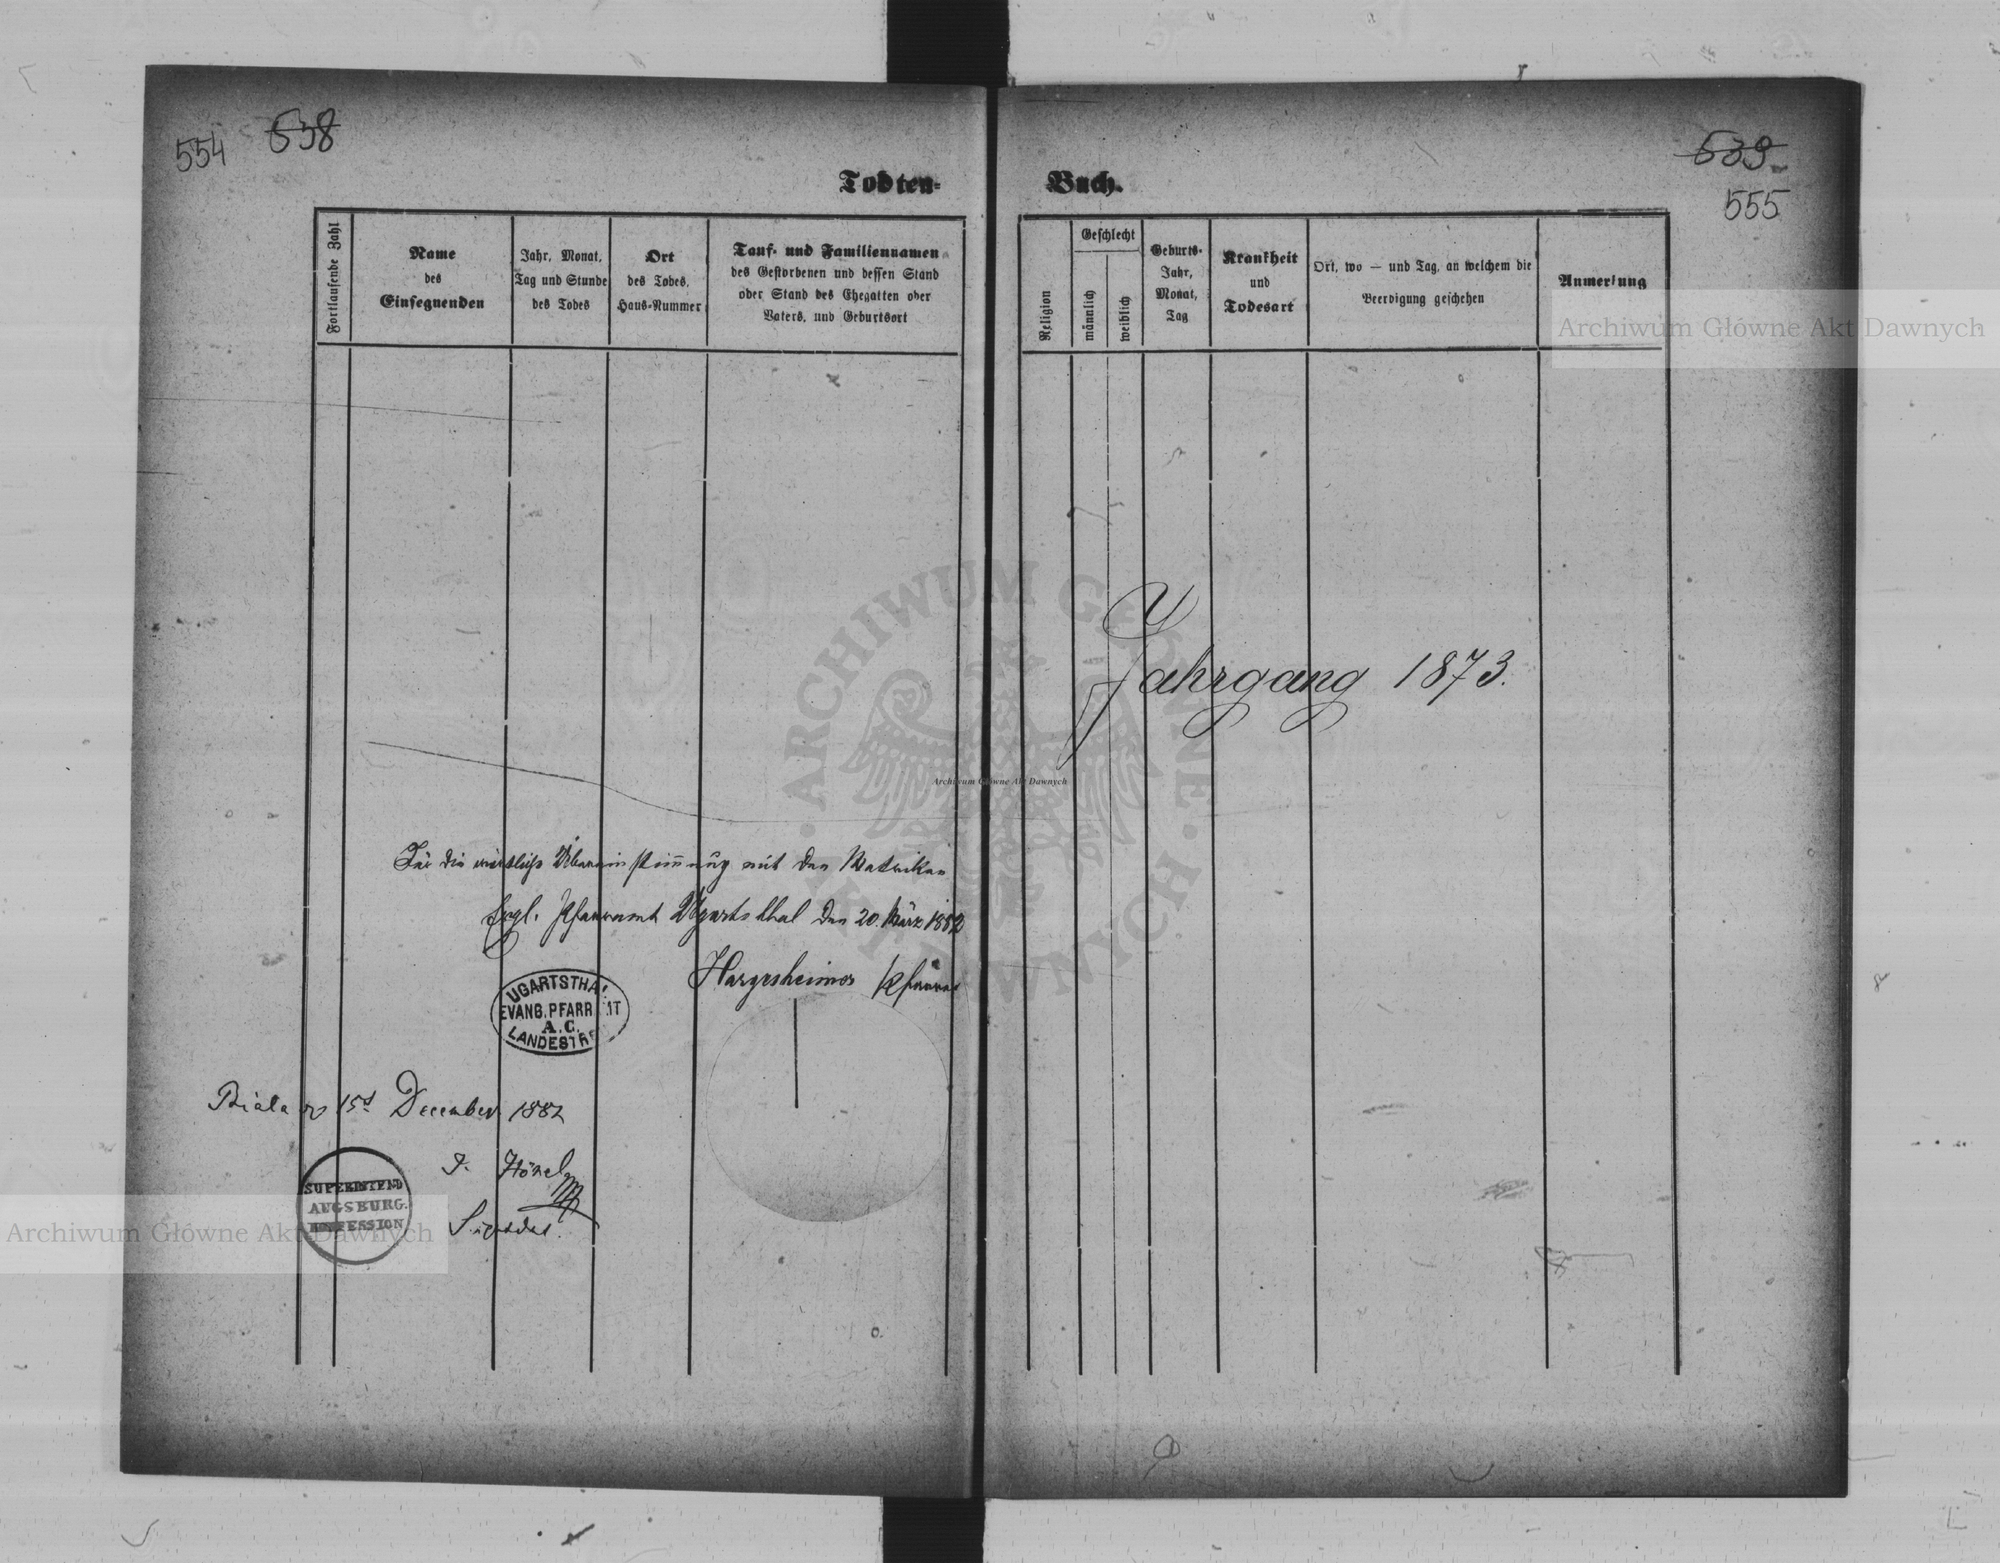 554
538
Todten-
Fortlaufende Zahl
Name
des
Einsegnenden
Jahr, Monat,
Tag und Stunde
des Todes
Ort
des Todes,
Haus-Nummer
Tauf- und Familiennamen
des Gestorbenen und dessen Stand
oder Stand des Ehegatten oder
Vaters, und Geburtsort
Für die wörtliche Übereinstimmung mit den Matriken
Evgl. Pfarramt Ugartsthal den 20. März 1882
Hargesheimer Pfarrer
UGARTSTHAL
EVANG. PFARRAMT
A. C.
LANDESTR
Biala 15 December 1882
J. Hönel
SUPERINTEND
AUGSBURG.
CONFESSION
539
555
Buch.
Religion
Geschlecht
männlich
weiblich
Geburts-
Jahr,
Monat,
Tag
Krankheit
und
Todesart
Ort, wo — und Tag, an welchem die
Beerdigung geschehen
Anmerkung
Jahrgang 1873.
Archiwum Główne Akt Dawnych
Archiwum Główne Akt Dawnych
Archiwum Główne Akt Dawnych
ARCHIWUM GŁÓWNE AKT DAWNYCH